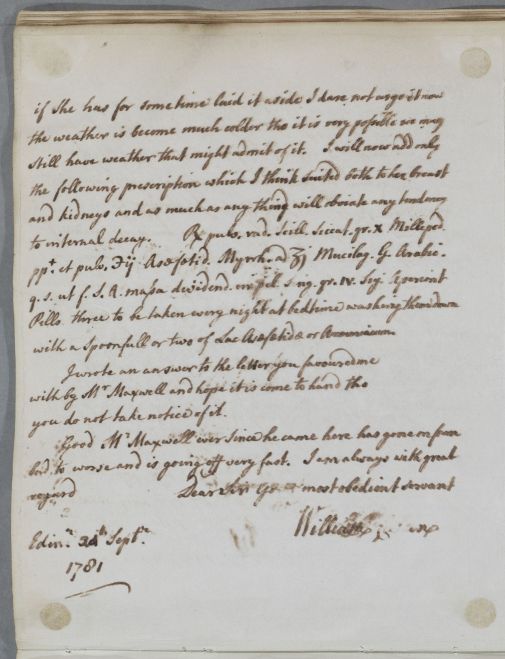 if She has for sometime laid it aside I dare not urge it now
the weather is become much colder tho it is very possible we may
still have weather that might admit of it. I will now add only
the following prescription which I think suited both to her breast
and kidneys and as much as any thing will obviate any tendency
to internal decay. ℞ pulv. rad. Scill. Siccat. gr. x Milleped.
ppt. et pulv. Ʒij Asafœtid. Myrrh. a Ʒj Mucilag. G. Arabic.
q. s. ut f. S. A. massa dividend. in pil. sing. gr. iv. Sig.
Pills three to be taken every night at bedtime washing them down
with a Spoonfull or two of Lac Asafœtidæ or
I wrote an answer to the letter you favoured me
with by Mr Maxwell and hope it is come to hand tho
you do not take notice of it.
Good Mr Maxwell ever since he came here has gone on from
bad to worse and is going off very fast. I am always with great
regard Dear Sir Yr most obedient servant
Willia
Edinr. 24th Septr.
1781